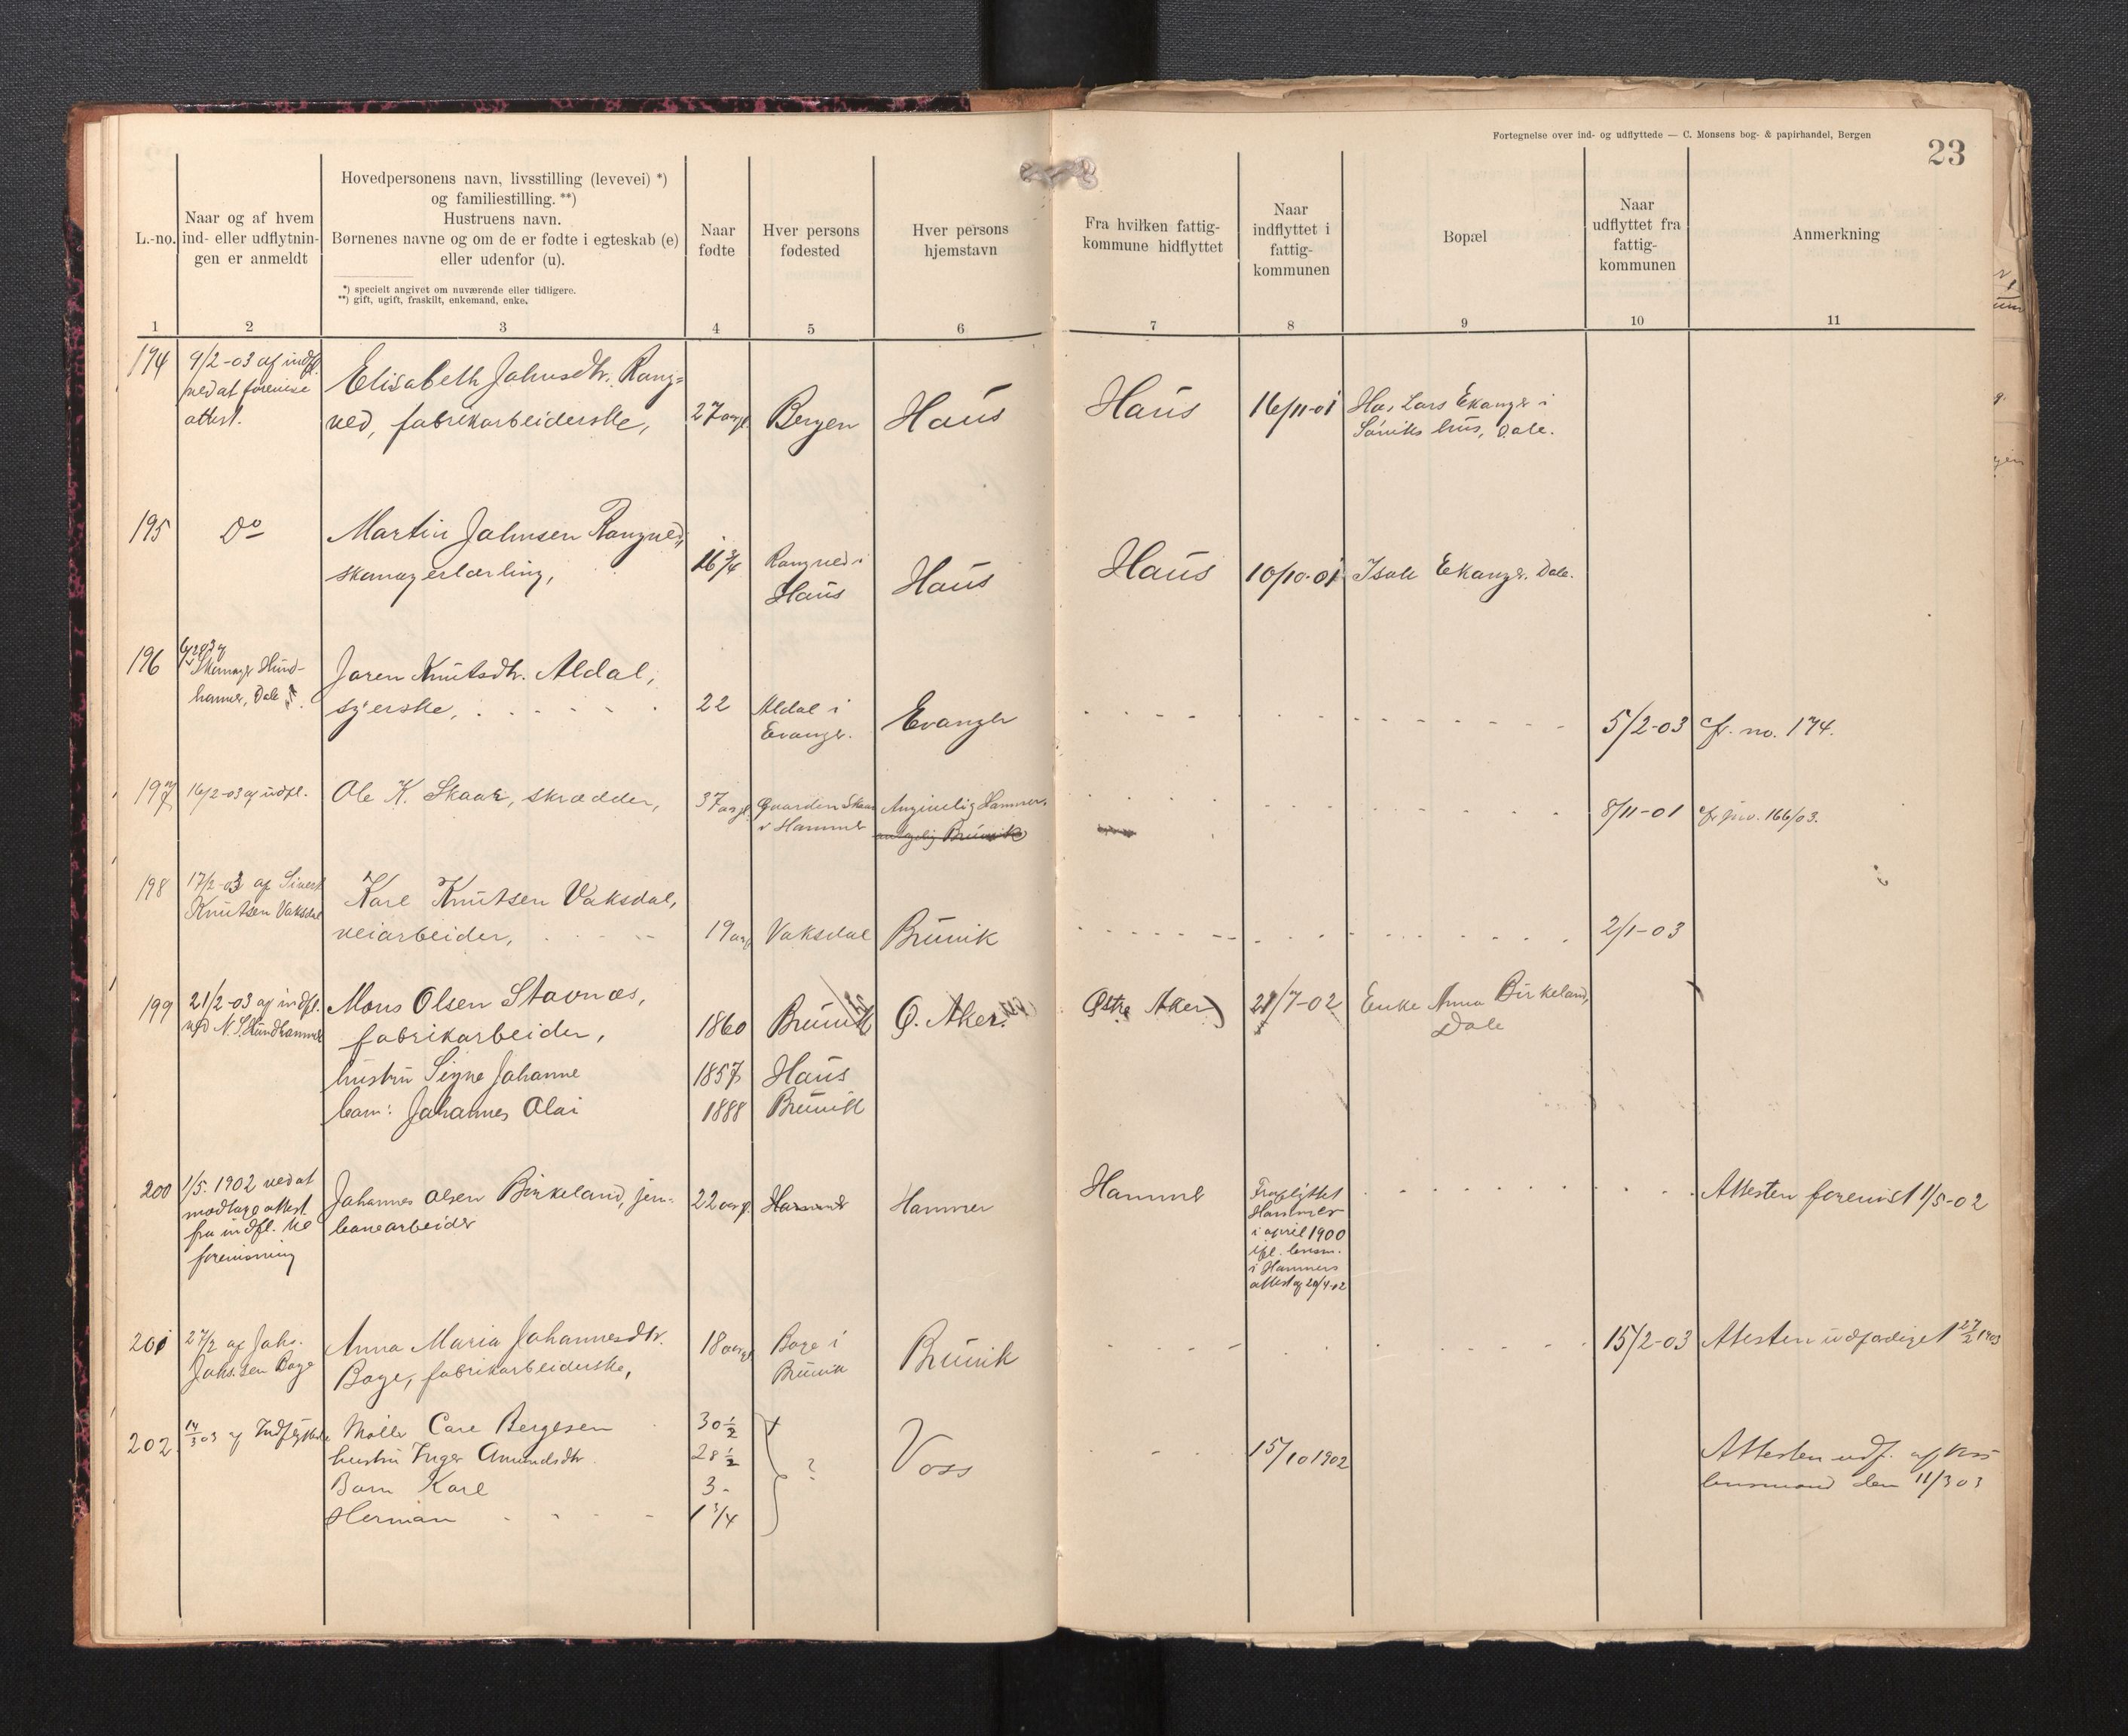 Fortegnelse over ind- og udflyttede — C. Monsens bog- & papirhandel, Bergen
23
L.-no.
Naar og af hvem
ind- eller udflytnin-
gen er anmeldt
Hovedpersonens navn, livsstilling (levevei) *)
og familiestilling. **)
Hustruens navn.
Børnenes navne og om de er fødte i egteskab (e)
eller udenfor (u).
*) specielt angivet om nuværende eller tidligere.
**) gift, ugift, fraskilt, enkemand, enke.
Naar
fødte
Hver persons
fødested
Hver persons
hjemstavn
Fra hvilken fattig-
kommune hidflyttet
Naar
indflyttet i
fattig-
kommunen
Bopæl
Naar
udflyttet fra
fattig-
kommunen
Anmerkning
1 2 3 4 5 6 7 8 9 10 11
194
9/2-03 af indfl.
ved at forevise
attest.
Elisabeth Johnsdtr. Rang-
ved, fabrikarbeiderske,
27 aar gl.
Bergen
Haus
Haus
16/11-01
Hos Lars Ekanger i
hus, Dale.
195
Do
Martin Johnsen Rangved,
skomagerlærling,
16 3/4
Rangved i
Haus
Haus
Haus
10/10-01
Isak Ekanger. Dale.
196
Skomager Hund-
hamer, Dale
Joren Knutsdtr. Aldal,
syerske,
22
Aldal i
Evanger.
Evanger
5/2-03
cfr. no. 174.
197
16/2-03 af udfl.
Ole K. Skaar, skrædder,
37 aar gl.
Gaarden Skaar
i Hammer
Angivelig Hammer.
angivelig Bruvik
8/11-01
cfr. jno. 166/03.
198
17/2-03 af Sivert
Knutsen Vaksdal
Karl Knutsen Vaksdal,
veiarbeider,
19 aar
Vaksdal
Bruvik
2/1-03
199
21/2-03 af indfl.
ved N. S. Hundhammer
Mons Olsen Stavnæs,
fabrikarbeider,
1860
Bruvik
Ø. Aker.
Østre Aker
21/7-02
Enke Anna Birkeland,
Dale
hustru Signe Johanne
1857
Haus
barn: Johannes Olai
1888
Bruvik
200
1/5. 1902 ved at
modtage attest
fra indfl. til
forevisning
Johannes Olsen Birkeland, jern-
banearbeider
22 aar gl.
Hammer
Hammer
Hammer
Fraflyttet
Hammer
i april 1900
ifl. lensm.
i Hammers
attest af 29/4-02
Attesten forevist 1/5-02
201
27/2 af Johs.
Johssen Boge
Anna Maria Johannesdtr.
Boge, fabrikarbeiderske,
18 aar gl.
Boge i
Bruvik
Bruvik
15/2-03
Attesten udfærdiget 27/2 1903
202
14/3 03 af Indflyttede
Møller Carl Bergesen
30 1/2
hustru Inger Amundsdtr.
28 1/2
Barn Karl
3 -
Herman
1 3/4
?
Voss
15/10 1902
Attesten udf. af Vos
lensmand den 11/3 03